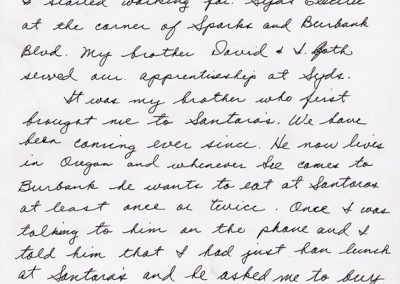 I started working for Syds Electric
at the corner of Sparks and Burbank
Blvd. My brother David & I both
served our apprentiship at Syds.
It was my brother who first
brought me to Santoro's. We have
been comring ever since. He now lives
in Oregon and whenever he comes to
Burbank he wants to eat at Santoros
at least once or twice. Once I was
talking to him on the phone and I
told him that I had just han lunch
at Santoro's and he asked me to buy